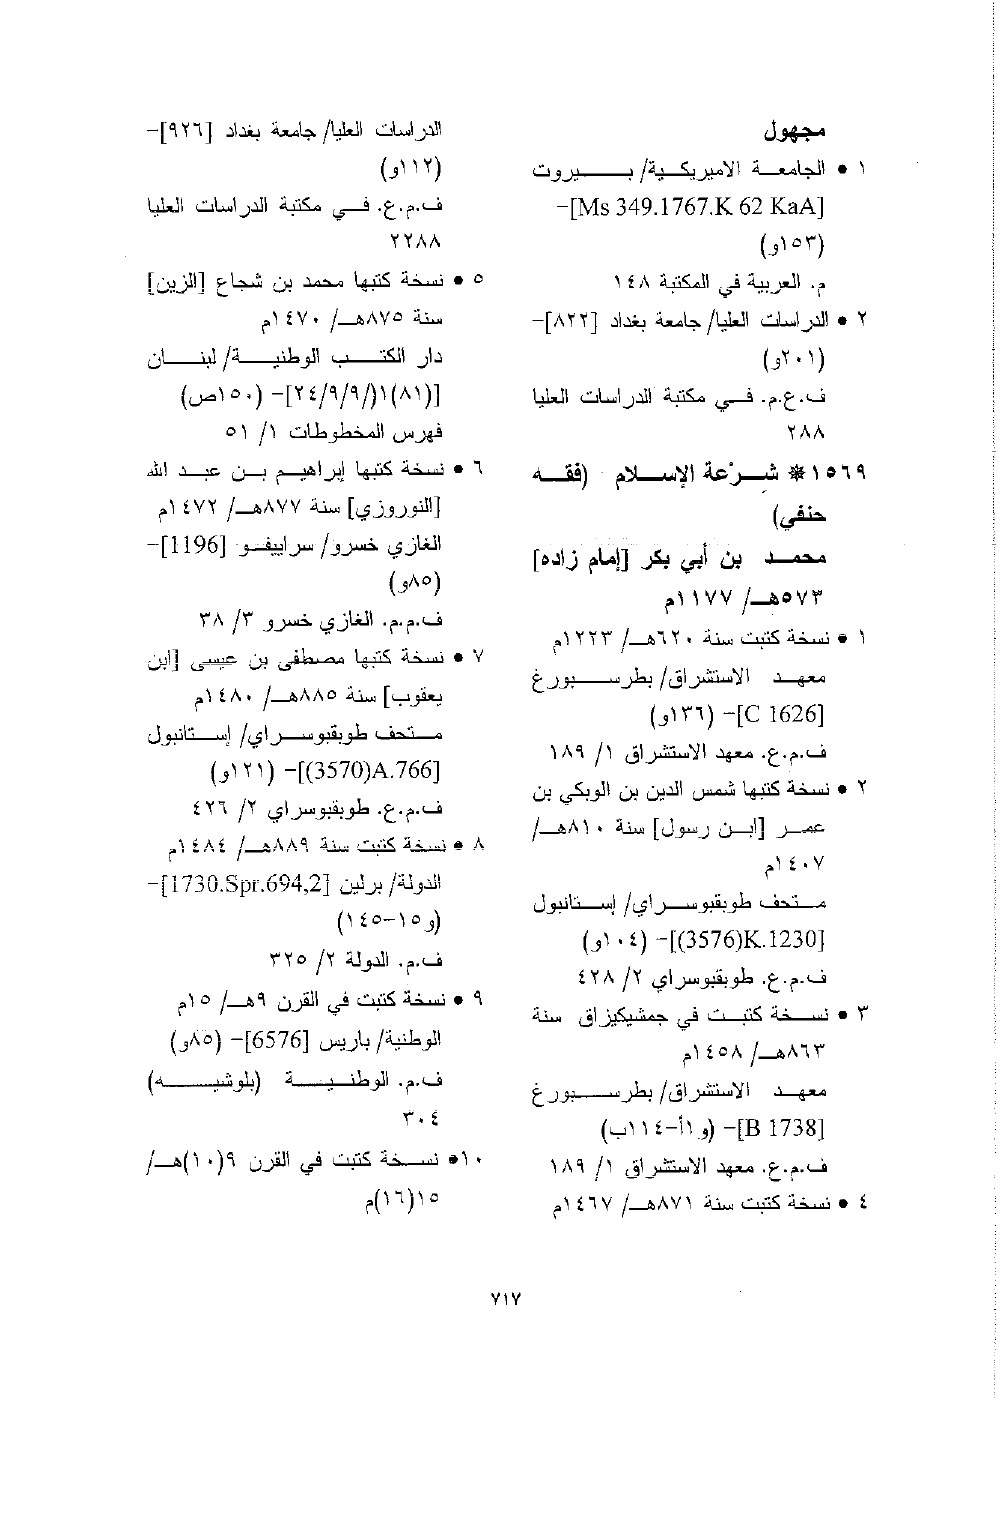 مجهول
١ • الجامعة الاميريكية/ بيروت
[Ms 349.1767.K 62 KaA]-
(١٥٣و)
م. العربية في المكتبة ١٤٨
٢ • الدراسات العليا/ جامعة بغداد [٨٢٢]-
(٢٠١و)
ف.ع.م. في مكتبة الدراسات العليا
٢٨٨
١٥٦٩ * شِرْعة الإسلام (فقه
حنفي)
محمد بن أبي بكر [إمام زاده]
٥٧٣هـ/ ١١٧٧م
١ • نسخة كتبت سنة ٦٢٠هـ/ ١٢٢٣م
معهد الاستشراق/ بطرسبورغ
[C 1626]- (١٣٦و)
ف.م.ع. معهد الاستشراق ١/ ١٨٩
٢ • نسخة كتبها شمس الدين بن الوبكي بن
عمر [ابن رسول] سنة ٨١٠هـ/
١٤٠٧م
متحف طوبقبوسراي/ إستانبول
[3576)K.1230)]- (١٠٤و)
ف.م.ع. طوبقبوسراي ٢/ ٤٢٨
٣ • نسخة كتبت في جمشيكيزاق سنة
٨٦٣هـ/ ١٤٥٨م
معهد الاستشراق/ بطرسبورغ
[B 1738]- (و١أ-١١٤ب)
ف.م.ع. معهد الاستشراق ١/ ١٨٩
٤ • نسخة كتبت سنة ٨٧١هـ/ ١٤٦٧م
الدراسات العليا/ جامعة بغداد [٩٢٦]-
(١١٢و)
ف.م.ع. في مكتبة الدراسات العليا
٢٢٨٨
٥ • نسخة كتبها محمد بن شجاع [الزين]
سنة ٨٧٥هـ/ ١٤٧٠م
دار الكتب الوطنية/ لبنان
[(٨١)١(/٢٤/٩/٩]- (١٥٠ص)
فهرس المخطوطات ١/ ٥١
٦ • نسخة كتبها إبراهيم بن عبد الله
[النوروزي] سنة ٨٧٧هـ/ ١٤٧٢م
الغازي خسرو/ سراييفو [1196]-
(٨٥و)
ف.م.م. الغازي خسرو ٣/ ٣٨
٧ • نسخة كتبها مصطفى بن عيسى [ابن
يعقوب] سنة ٨٨٥هـ/ ١٤٨٠م
متحف طوبقبوسراي/ إستانبول
[3570)A.766)]- (١٢١و)
ف.م.ع. طوبقبوسراي ٢/ ٤٢٦
٨ • نسخة كتبت سنة ٨٨٩هـ/ ١٤٨٤م
الدولة/ برلين [1730.Spr.694,2]-
(و١٥-١٤٥)
ف.م. الدولة ٢/ ٣٢٥
٩ • نسخة كتبت في القرن ٩هـ/ ١٥م
الوطنية/ باريس [6576]- (٨٥و)
ف.م. الوطنية (بلوشيه)
٣٠٤
١٠• نسخة كتبت في القرن ٩(١٠)هـ/
١٥(١٦)م
٧١٧